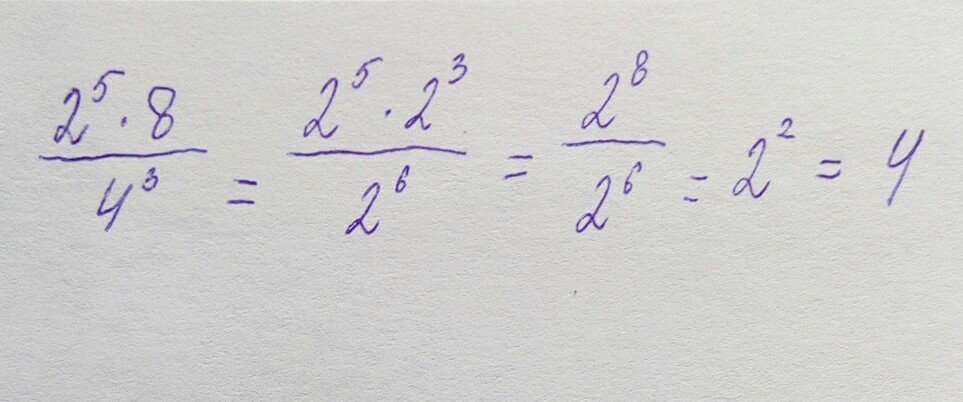 \frac{2^5 \cdot 8}{4^3} = \frac{2^5 \cdot 2^3}{2^6} = \frac{2^8}{2^6} = 2^2 = 4